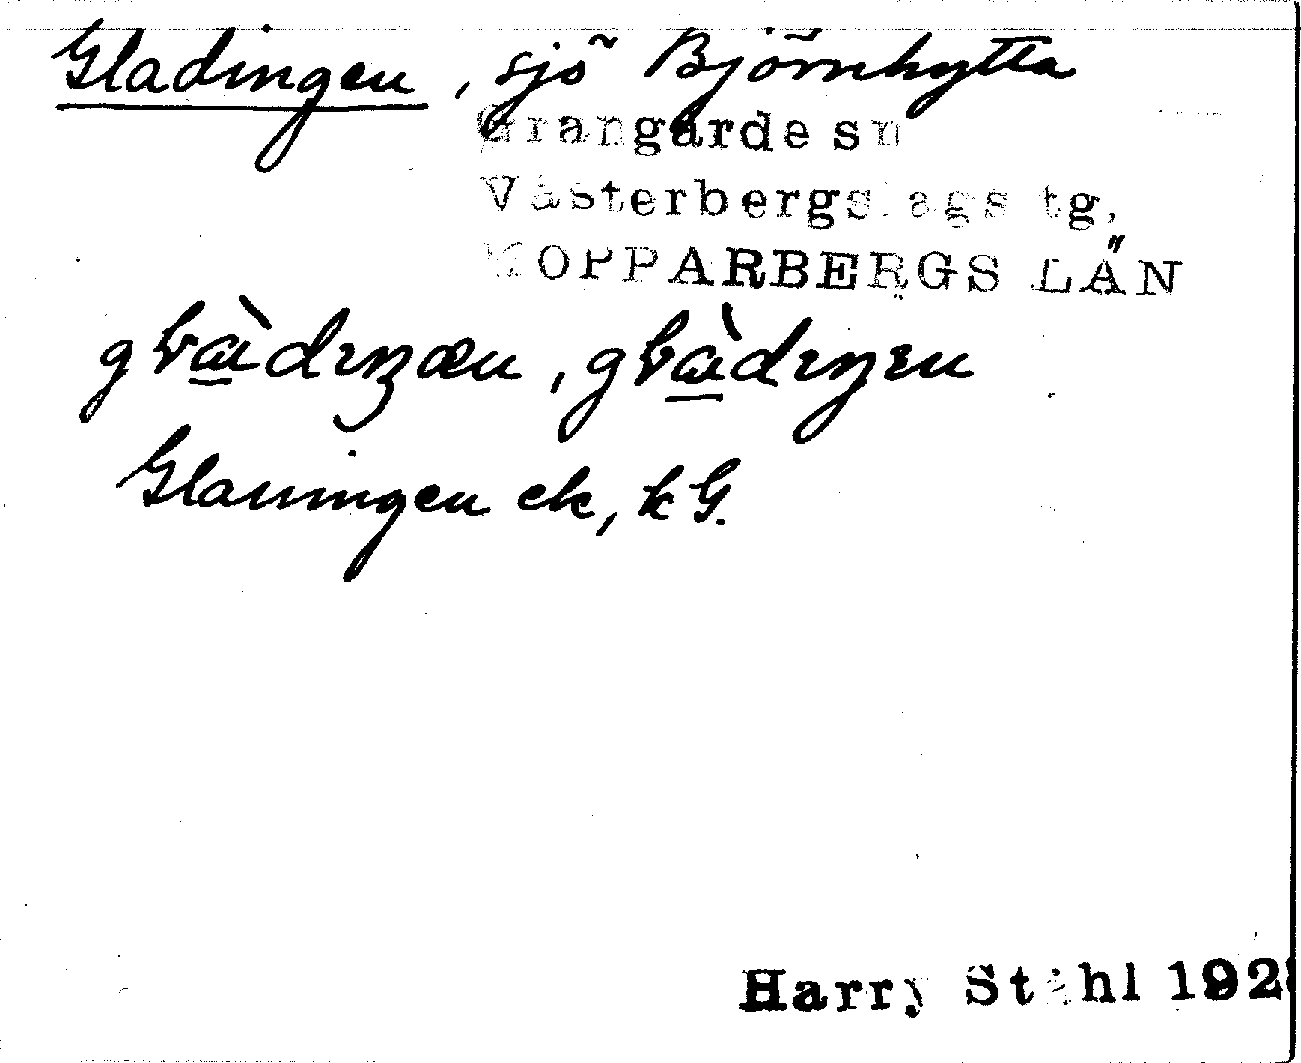 Gladingen, sjö Björnhytta
Grangärde sn
Västerbergslags tg,
KOPPARBERGS LÄN
Glaningen ek, k G.
Harry Ståhl 192